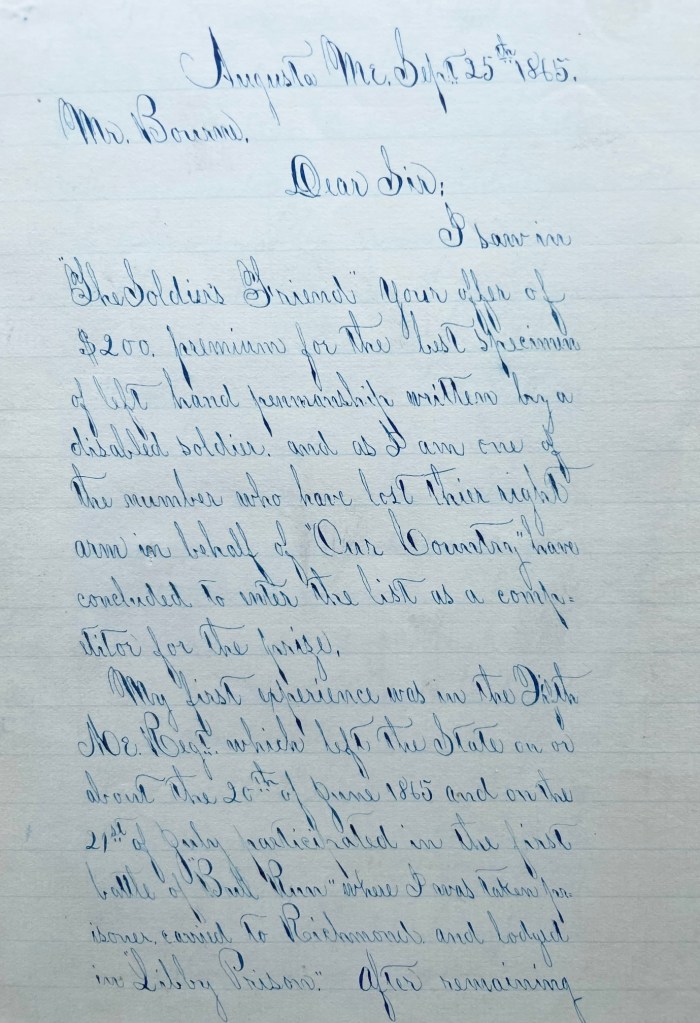 Augusta Me. Sept. 25th 1865.
Mr. Bourne.
Dear Sir;
I saw in
"The Soldier's Friend" your offer of
$200. premium for the best specimen
of left hand penmanship written by a
disabled soldier. and as I am one of
the number who have lost thier right
arm in behalf of "Our Country" have
concluded to enter the list as a comp-
etitor for the prize.
My first experience was in the Fifth
Me. Regt. which left the State on or
about the 20th of June 1865 and on the
21st of July participated in the first
battle of "Bull Run" where I was taken pr-
isoner, carried to Richmond and lodged
in "Libby Prison." After remaining